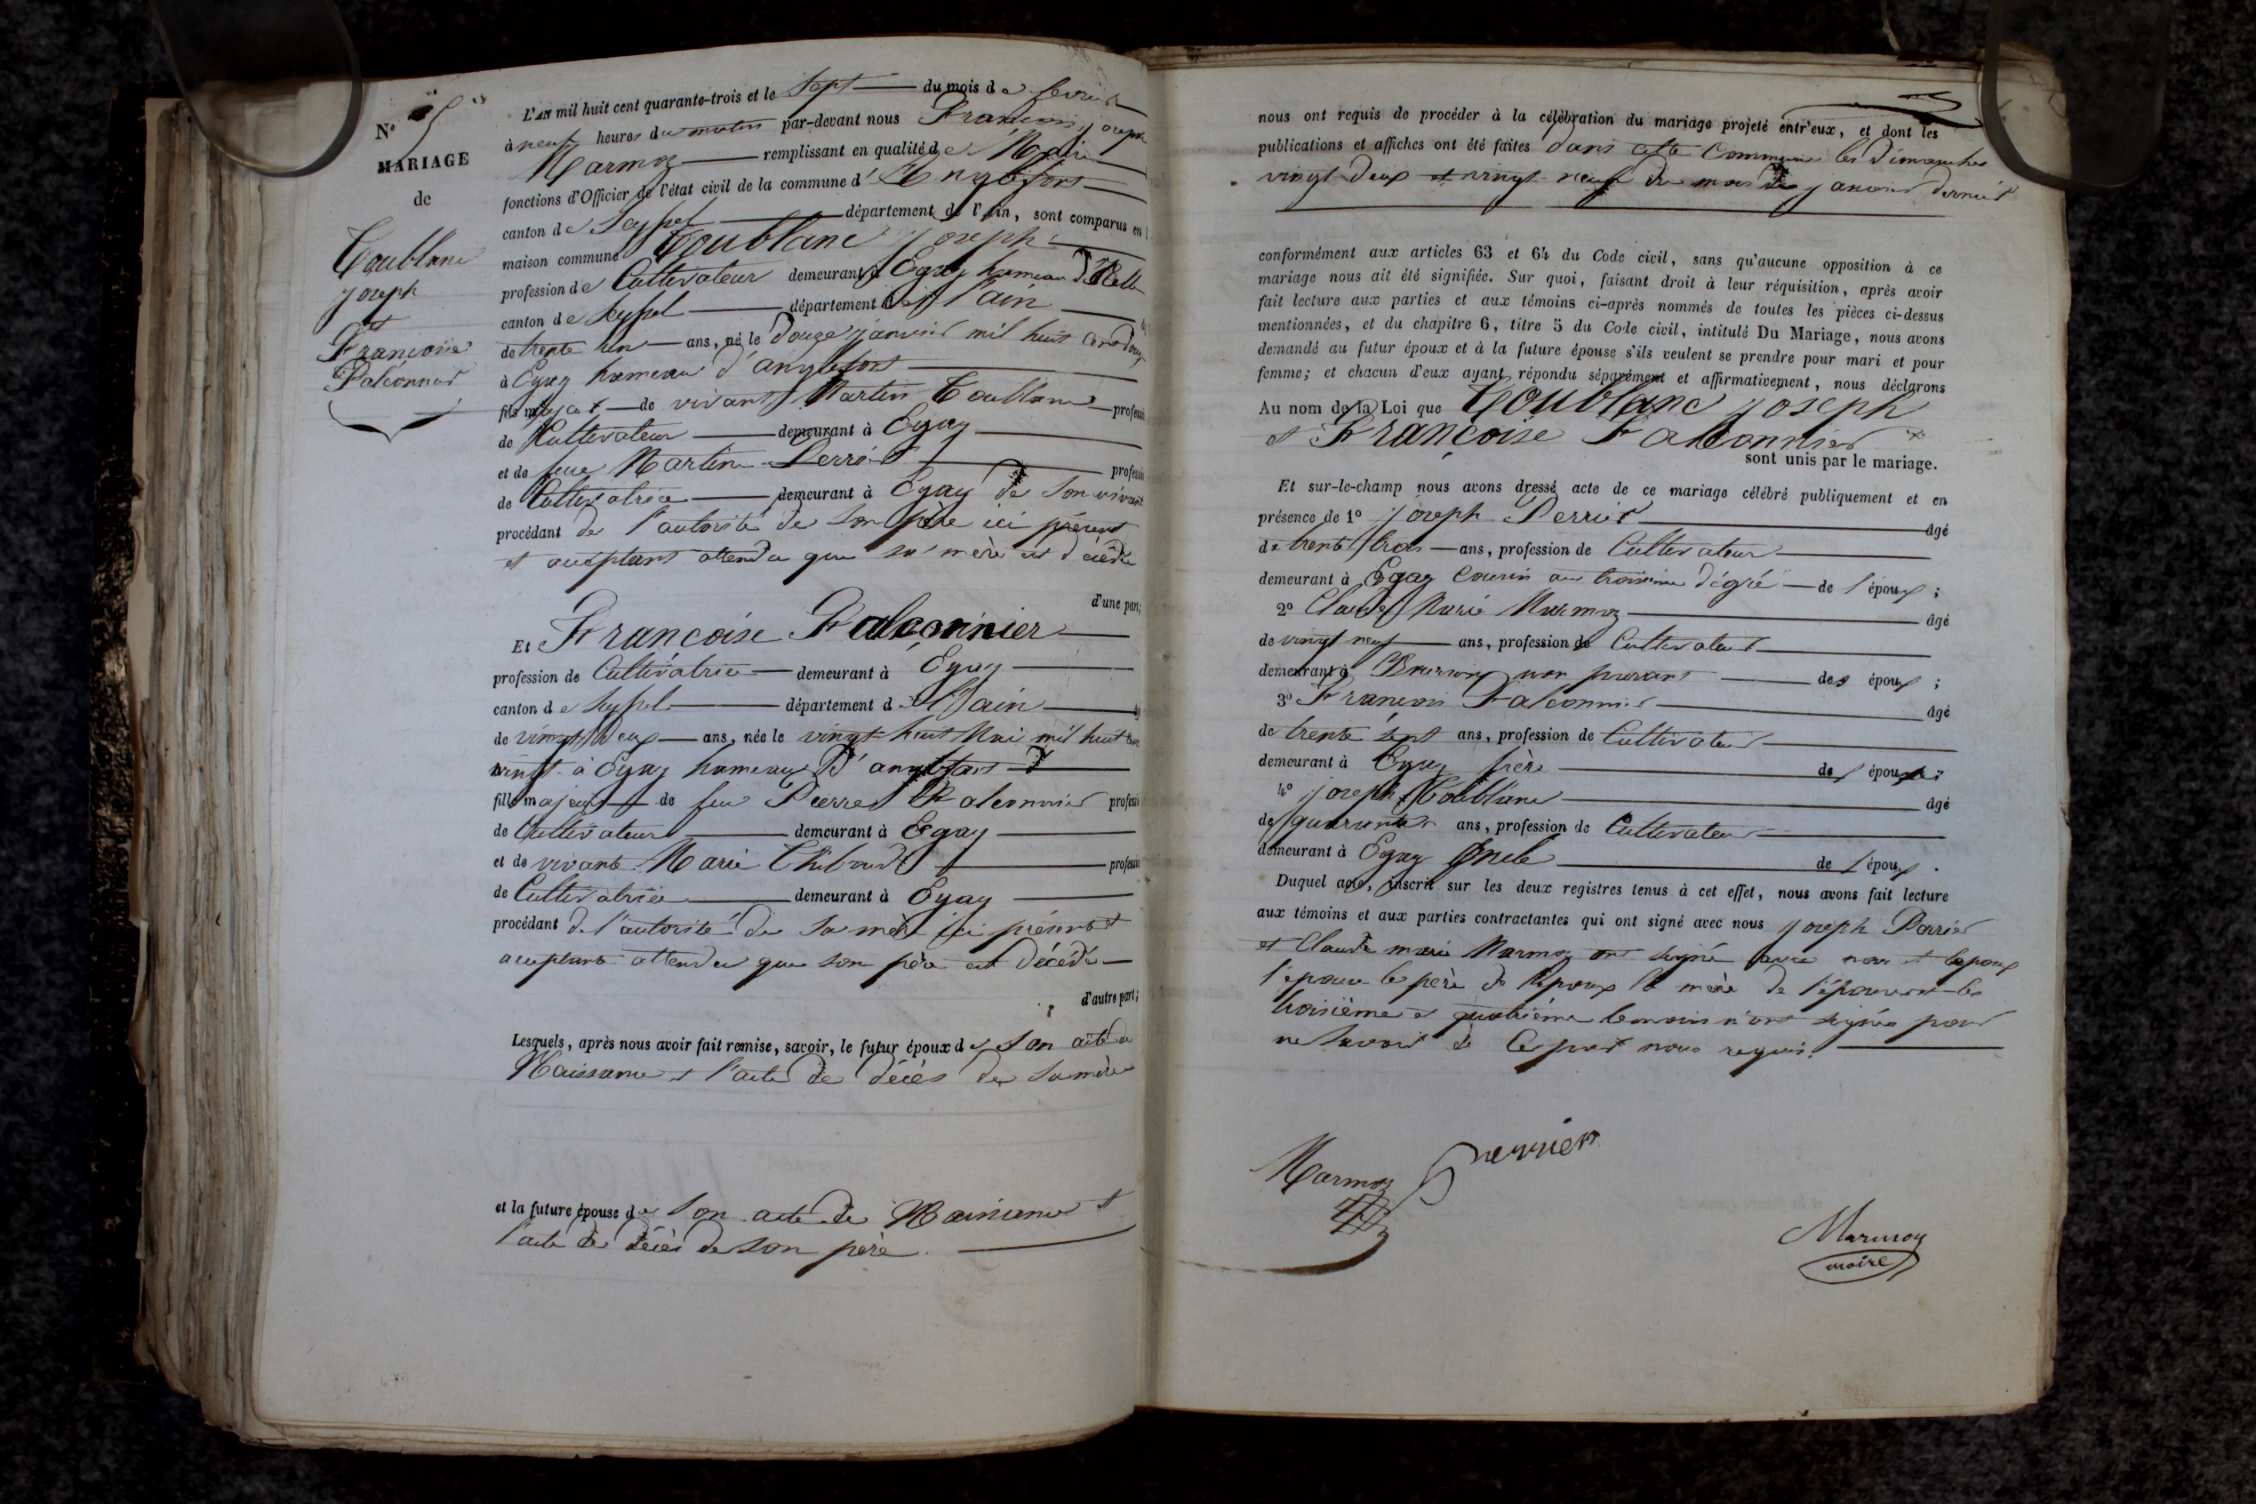 N° 5
MARIAGE
de
Coublanc
Joseph
&
Françoise
Falconnier
L'AN mil huit cent quarante-trois et le Sept du mois de fevrier
à neuf heures du matin par-devant nous François Joseph
Marmoz remplissant en qualité de Maire
fonctions d'Officier de l'état civil de la commune d'Anglefort
canton de Seyssel département de l'Ain, sont comparus en
maison commune Coublanc Joseph
profession de Cultivateur demeurant à Eyay hameau
canton de Seyssel département de l'ain
de trente un ans, né le douze janvier mil huit cent douze
à Eyay hameau d'anglefort
fils majeur de vivant Martin Coublanc profession
de Cultivateur demeurant à Eyay
et de feue Martine Perrier profession
de Cultivatrice demeurant à Eyay de son vivant
procédant de l'autorité de son père ici présent
et acceptant attendu que sa mère est décédée
d'une part;
Et Francoise Falconnier
profession de Cultivatrice demeurant à Eyay
canton de Seyssel département de l'ain
de vingt deux ans, née le vingt huit Mai mil huit cent
vingt à Eyay hameau d'anglefort
fille majeure de feu Pierre Falconnier profession
de Cultivateur demeurant à Eyay
et de vivante Marie Thibaud profession
de Cultivatrice demeurant à Eyay
procédant de l'autorité de sa mère ici présente et
acceptante attendu que son père est décédé
d'autre part;
Lesquels, après nous avoir fait remise, savoir, le futur époux de son acte de
Naissance et l'acte de décès de sa mère
et la future épouse de son acte de Naissance et
l'acte de décès de son père.
nous ont requis de procéder à la célébration du mariage projeté entr'eux, et dont les
publications et affiches ont été faites dans cette Commune les dimanches
vingt deux et vingt neuf du mois de janvier dernier
conformément aux articles 63 et 64 du Code civil, sans qu'aucune opposition à ce
mariage nous ait été signifiée. Sur quoi, faisant droit à leur réquisition, après avoir
fait lecture aux parties et aux témoins ci-après nommés de toutes les pièces ci-dessus
mentionnées, et du chapitre 6, titre 5 du Code civil, intitulé Du Mariage, nous avons
demandé au futur époux et à la future épouse s'ils veulent se prendre pour mari et pour
femme; et chacun d'eux ayant répondu séparément et affirmativement, nous déclarons
Au nom de la Loi que Coublanc Joseph
et Françoise Falconnier
sont unis par le mariage.
Et sur-le-champ nous avons dressé acte de ce mariage célébré publiquement et en
présence de 1° Joseph Perrier âgé
de trente trois ans, profession de Cultivateur
demeurant à Eyay cousin au troisième dégré de l'époux;
2° Claude Marie Marmoz âgé
de vingt neuf ans, profession de Cultivateur
demeurant à non parent des époux;
3° François Falconnier âgé
de trente sept ans, profession de Cultivateur
demeurant à Eyay frère de l'épouse;
4° Joseph Coublanc âgé
de quarante ans, profession de Cultivateur
demeurant à Eyay Oncle de l'époux.
Duquel acte, inscrit sur les deux registres tenus à cet effet, nous avons fait lecture
aux témoins et aux parties contractantes qui ont signé avec nous Joseph Perrier
et Claude marie Marmoz ont signé avec nous et l'époux
l'épouse le père de l'époux la mère de l'épouse et les
troisième et quatrième témoins n'ont signés pour
ne savoir de ce part nous requis.
Marmoz
Perrier
Marmoz
maire